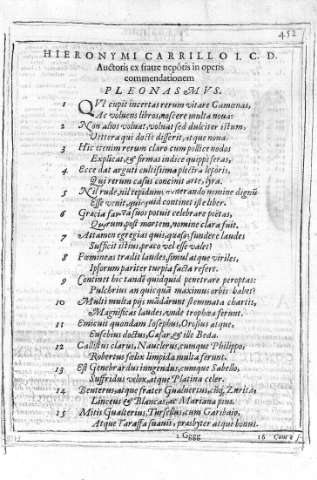 452
HIERONYMI CARRILLO I. C. D.
Auctoris ex fratre nepôtis in operis
commendationem
PLEONASMVS.
1 QVI cupit incertas rerum vitare Camœnas,
Ac voluens libros, noscere multa noua:
2 Non alios voluat, voluat sed dulciter istum,
Vittera qui doctè disserit, atque noua.
3 Hic etenim rerum claro cum pollice nodos
Explicat, & firmas indice quippi seras,
4 Ecce dat arguti cultissima plectra leporis,
Qui rerum casus concinit arte, lyra.
5 Nil rude, nil tepidum, venerando nomine dignũ
Esse venit, quidquid continet iste liber.
6 Græcia facta suos potuit celebrare poëtas,
Quorum, post mortem, nomine clara fuit.
7 Attamen egregias quis, quæso, fundere laudes
Sufficit istius, præco vel esse valet?
8 Fœmineas tradit laudes, simul atque viriles,
Ipsorum pariter turpia facta refert.
9 Continet hic tandẽ quidquid penetrare peroptas:
Pulchrius an quicquã maximus orbis habet?
10 Multi multa prius mãdarunt stemmata chartis,
Magnificas laudes, unde trophæa ferunt.
11 Emicuit quondam Iosephus, Orosius atque,
Eusebius doctus, Cæsar, & ille Beda.
12 Callistus clarus, Nauclerus, cumque Philippo,
Robertus fœlix limpida multa ferunt.
13 Est Genebrardus iungendus, cumque Sabello,
Suffridus velox, atque Platina celer.
14 Beuterus, atque frater Gualuertus, Zurita,
Linceus & Blancas, ac Mariana pius.
15 Mitis Gualterius, Tursellus, cum Garibaio,
Atque Taraffa suauis, presbyter atque bonus.
2 Gggg
16 Cum &